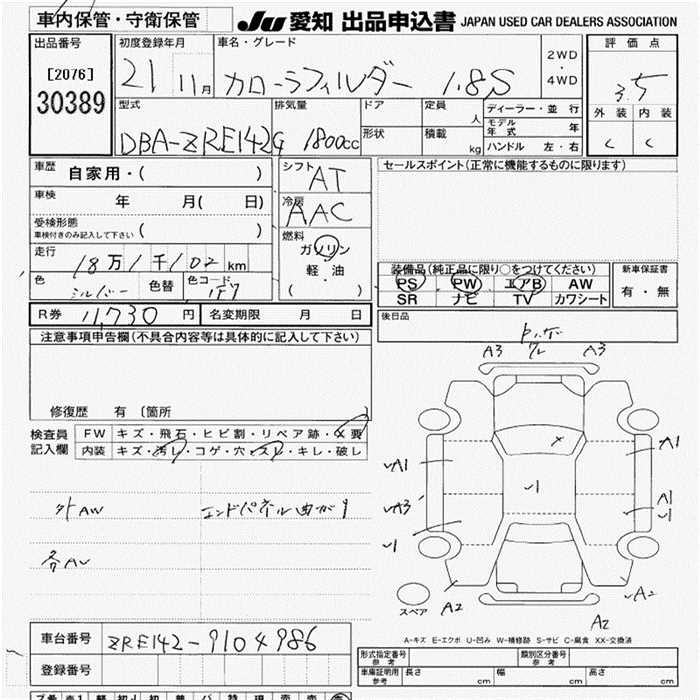 車内保管・守衛保管
JU 愛知 出品申込書 JAPAN USED CAR DEALERS ASSOCIATION
出品番号
[2076]
30389
初度登録年月
21 11月
車名・グレード
カローラフィルダー 1.8S
2WD
・
4WD
評価点
3.5
外装 内装
C C
型式
DBA-ZRE142G
排気量
1800cc
ドア
形状
定員
人
積載
kg
ディーラー・並行
モデル年式 年
ハンドル 左・右
車歴 自家用・( )
車検 年 月( 日)
受検形態
車検付きのみ記入して下さい ( )
走行 18万1千102km
色 シルバー 色替 色コード 1F7
シフト AT
冷房 AAC
燃料
ガソリン
軽・油
( )
セールスポイント(正常に機能するものに限ります)
装備品(純正品に限り○をつけてください)
PS PW エアB AW
SR ナビ TV カワシート
新車保証書
有・無
R券 11,730円 名変期限 月 日
後日品
注意事項申告欄(不具合内容等は具体的に記入して下さい)
修復歴 有 〔箇所 〕
検査員
記入欄
FW キズ・飛石・ヒビ割・リペア跡・X要
内装 キズ・汚レ・コゲ・穴・スレ・キレ・破レ
外AW エンドパネル曲がり
各AU
A3 A3
A1
A1
A3
A1
A2
A2
A2
スペア
A-キズ E-エクボ U-凹み W-補修跡 S-サビ C-腐食 XX-交換済
車台番号 ZRE142-9104986
登録番号
形式指定番号
参考
類別区分番号
参考
車庫証明用
参考
長さ cm 幅 cm 高さ cm